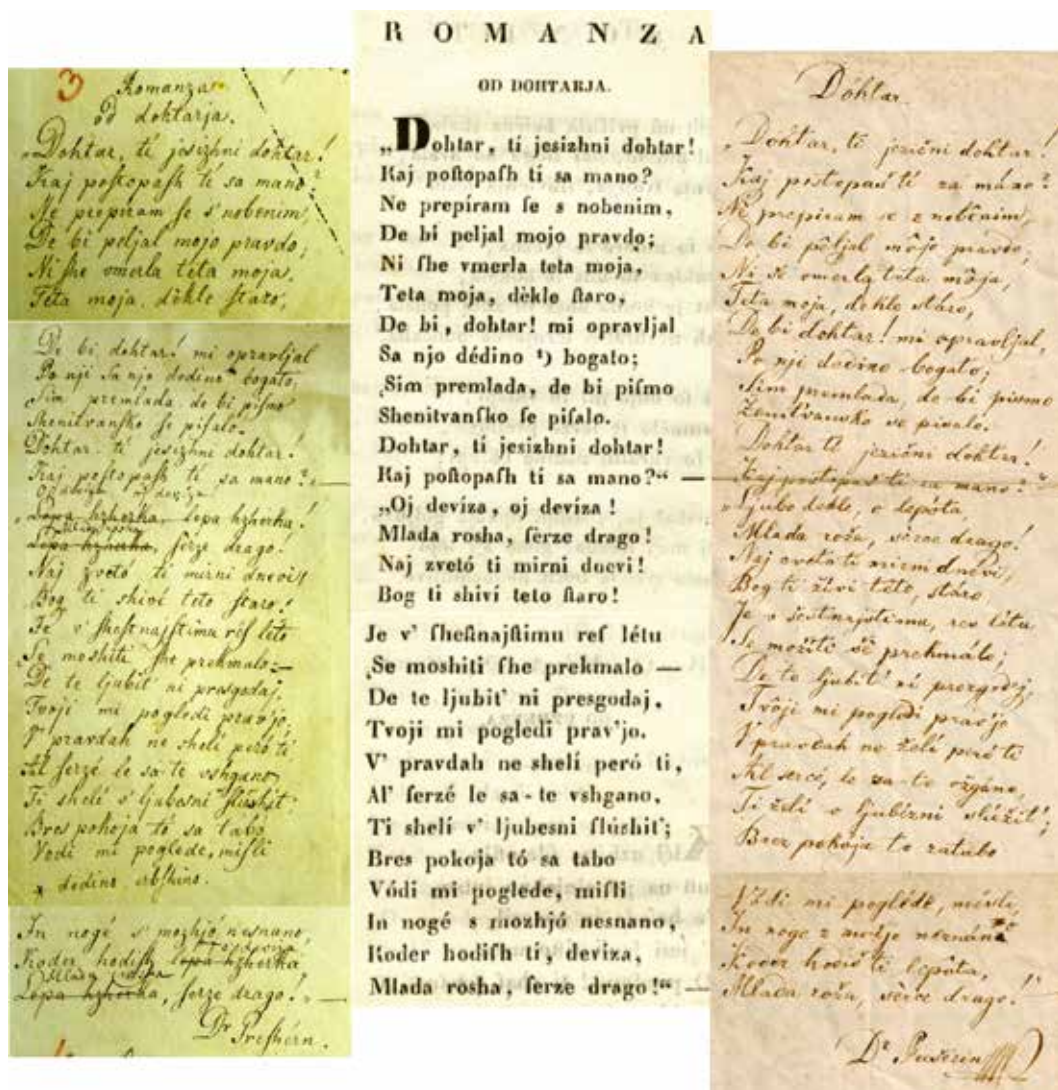 3
Romanza
od dohtarja.
„Dohtar, ti jesizhni dohtar!
Kaj poſtopaſh ti sa mano?
Ne prepiram ſe s' nobenim,
De bi peljal mojo pravdo;
Ni ſhe vmerla teta moja,
Teta moja, dèkle ſtaro,
De bi, dohtar! mi opravljal
Po nji sa njo dedino bogato;
Sim premlada, de bi piſmo
Shenitvanſko ſe piſalo.
Dohtar, ti jesizhni dohtar!
Kaj poſtopaſh ti sa mano? —
Oj deviza, oj deviza!
„Lepa hzherka, lepa hzherka!
Mlada rosha
Lepa hzherka, ſerze drago!
Naj zvetó ti mirni dnevi!
Bog ti shiví teto ſtaro!
Je v' ſheſtnajſtimu reſ léto
Se moshiti ſhe prekmalo —
De te ljubit' ni presgodaj,
Tvoji mi pogledi pravjo,
V' pravdah ne shelí peró ti
Al ſerzé le sa-te vshgano,
Ti shelí v' ljubesni ſlushit'
Bres pokoja tó sa tabo
Vodi mi poglede, miſli
x dedino erbſhino.
In nogé s' mozhjó nesnano,
Koder hodiſh lepa hzherka
Mlada rosha
Lepa hzherka, ſerze drago! —
Dr Preſhérn.
ROMANZA
OD DOHTARJA.
„Dohtar, tí jesizhni dohtar!
Kaj poſtopaſh tí sa mano?
Ne prepíram ſe s nobenim,
De bi peljal mojo pravdo;
Ni ſhe vmerla teta moja,
Teta moja, dèkle ſtaro,
De bi, dohtar! mi opravljal
Sa njo dédino ¹) bogato;
Sim premlada, de bi piſmo
Shenitvanſko ſe piſalo.
Dohtar, tí jesizhni dohtar!
Kaj poſtopaſh tí sa mano?“ —
„Oj devíza, oj devíza!
Mlada rosha, ſérze drago!
Naj zvetó ti mirni dnevi!
Bog ti shiví teto ſtaro!
Je v' ſheſtnajſtimu reſ létu
Se moshiti ſhe prekmalo —
De te ljubit' ni presgodaj,
Tvoji mi pogledi prav'jo.
V' pravdah ne shelí peró ti,
Al' ſerzé le sa-te vshgano,
Ti shelí v' ljubesni ſlúshit';
Bres pokoja tó sa tabo
Vódi mi poglede, miſli
In nogé s mozhjó nesnano,
Koder hodiſh ti, devíza,
Mlada rosha, ſerze drago!“ —
Dóhtar.
„Dohtar, ti jezični dohtar!
Kaj postopaš ti za máno?
Ne prepiram se z nobenim,
De bi pêljal môjo pravdo;
Ni še vmerla têta môja,
Teta moja, dekle stáro,
De bi dohtar! mi opravljal,
Po nji dedino bogato;
Sim premlada, de bi pismo
Ženitvansko se pisalo.
Dohtar ti jezični dohtar!
Kaj postopaš ti za mano?“
„Ljubo dekle, o lepóta,
Mlada roža, serce drago!
Naj cveto ti mirni dnevi,
Bog ti živi teto, stáro,
Je v šestnajstimu, res létu
Se možiti še prekmálo;
De te ljubit' ni prezgodaj,
Tvôji mi pogledi prav'jo
V pravdah ne želí peró ti
Al sercé, le za-te vžgáno,
Ti želí v ljubézni slúžit';
Brez pokoja to za tabo
Vôdi mi poglede, misli,
In noge z močjo neznáno
Koder hodiš ti lepôta,
Mlada roža, serce drago!“
Dr Prešérin